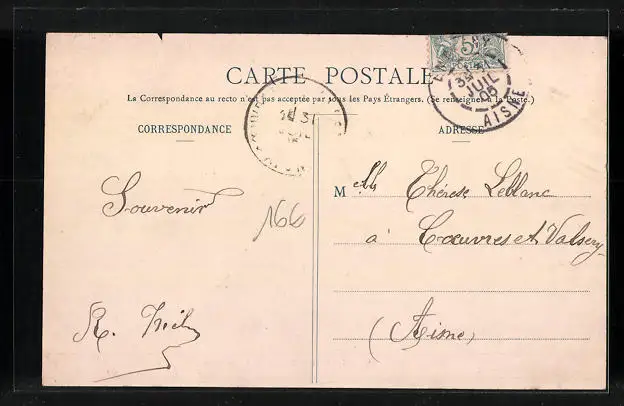 CARTE POSTALE
La Correspondance au recto n'est pas acceptée par tous les Pays Étrangers. (Se renseigner à la Poste.)
CORRESPONDANCE
ADRESSE
5c
JUIL
05
AISNE
31
Souvenir
166
R.
Melle Thérèse Leblanc
à Coeuvres et Valsery
(Aisne)